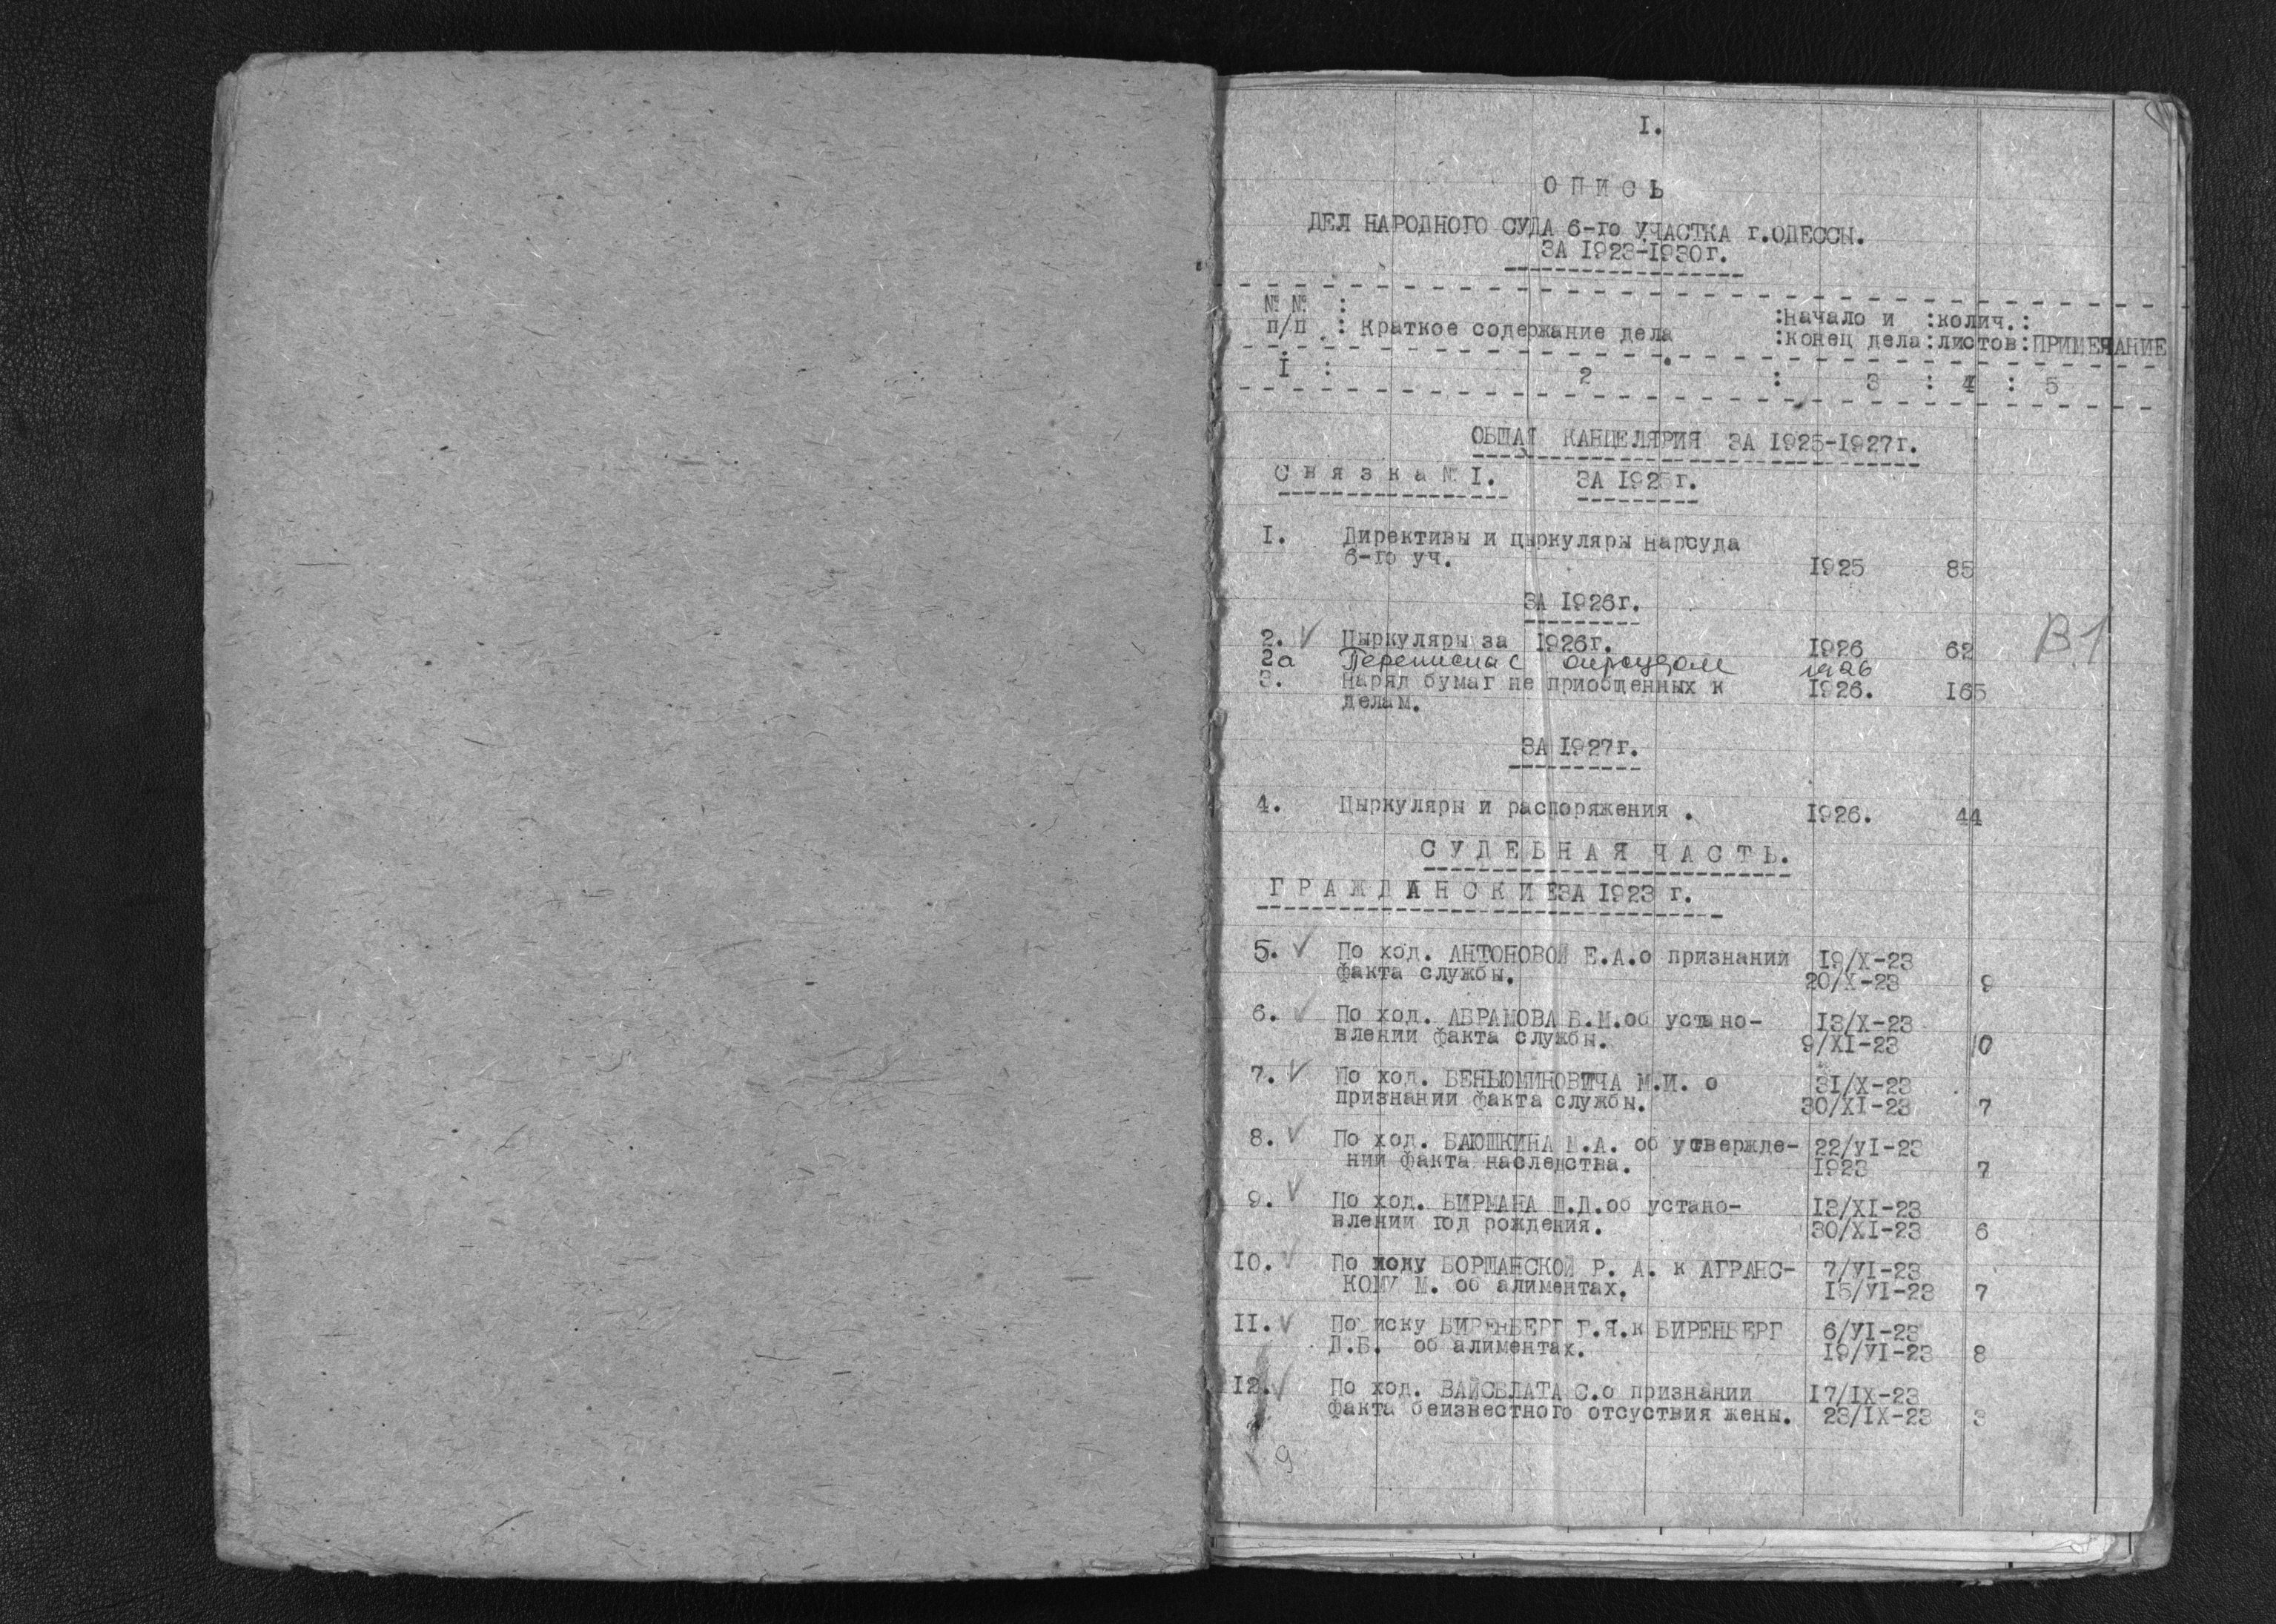 I.
ОПИСЬ
ДЕЛ НАРОДНОГО СУДА 6-го УЧАСТКА г.ОДЕССЫ.
ЗА 1923-1930г.
№ № :
п/п : Краткое содержание дела :начало и :колич.:
:конец дела:листов:ПРИМЕЧАНИЕ
I : 2 : 3 : 4 : 5
ОБЩАЯ КАНЦЕЛЯРИЯ ЗА 1925-1927г.
Связка № I. ЗА 1925г.
I. Директивы и цыркуляры нарсуда
6-го уч. 1925 85
ЗА 1926г.
2. √ Цыркуляры за 1926г. 1926 62 В.1
2а Переписка с окрсудом 1926
3. Наряд бумаг не приобщенных к 1926. 165
делам.
ЗА 1927г.
4. Цыркуляры и распоряжения . 1926. 44
СУДЕБНАЯ ЧАСТЬ.
ГРАЖДАНСКИЕ ЗА 1923 г.
5. √ По ход. АНТОНОВОЙ Е.А.о признании 19/X-23
факта службы. 20/X-23 9
6. √ По ход. АБРАМОВА Б.М.об устано- 13/X-23
влении факта службы. 9/XI-23 10
7. √ По ход. БЕНЬЮМИНОВИЧА М.И. о 31/X-23
признании факта службы. 30/XI-23 7
8. √ По ход. БАЮШКИНА М.А. об утвержде- 22/УI-23
нии факта наследства. 1923 7
9. √ По ход. БИРМАНА Ш.Д.об устано- 13/XI-23
влении год рождения. 30/XI-23 6
10. √ По иску БОРЩАНСКОЙ Р. А. к АГРАНС- 7/УI-23
КОМУ М. об алиментах. 15/УI-23 7
II. √ По иску БИРЕНБЕРГ Г.Я.к БИРЕНБЕРГ 6/УI-23
Д.Б. об алиментах. 19/УI-23 8
12. √ По ход. ВАЙСБЛАТА С.о признании 17/IX-23
факта беизвестного отсуствия жены. 23/IX-23 3
9